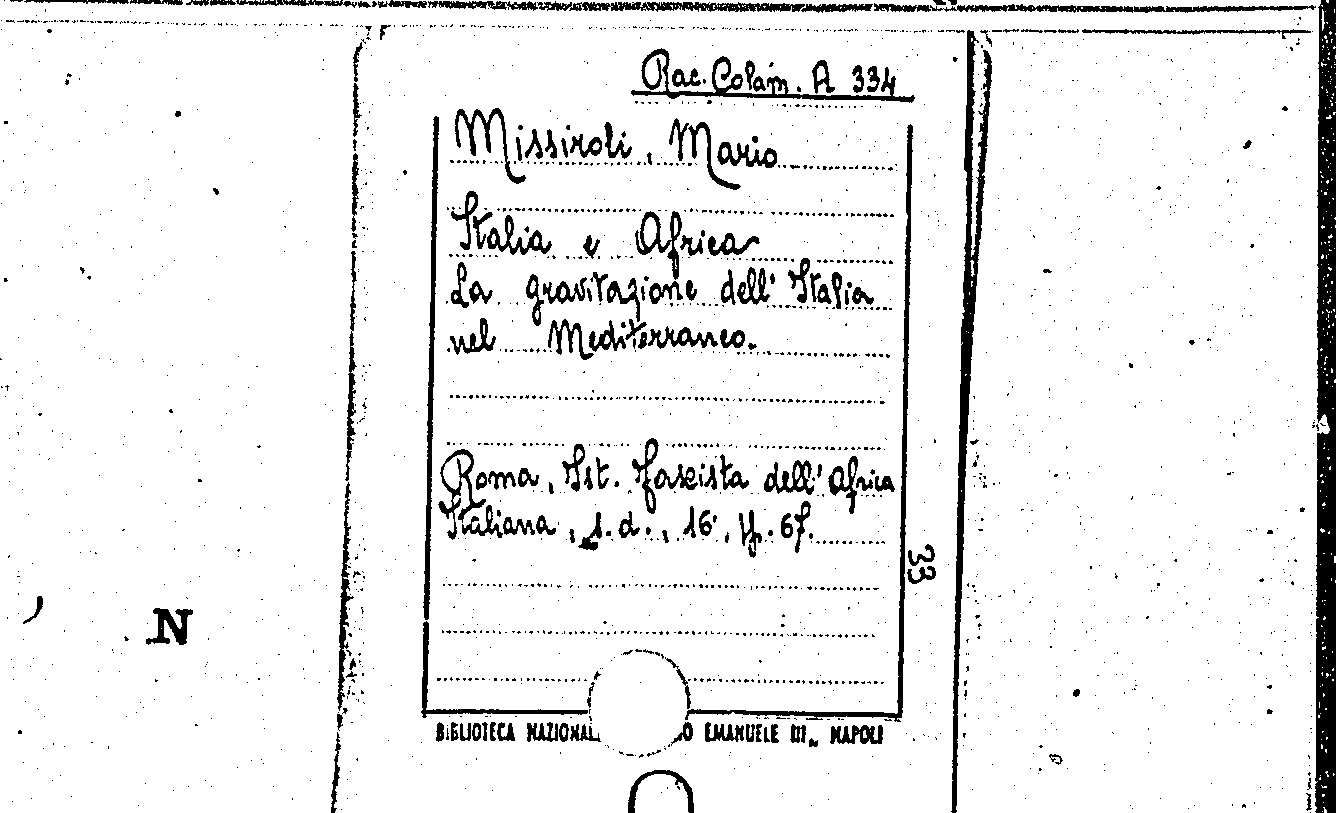 Rac. Colam. A 334
Missiroli, Mario
Italia e Africa
La gravitazione dell'Italia
nel Mediterraneo.
Roma, Ist. fascista dell'Africa
Italiana, s.d., 16°, pp. 67.
33
N
BIBLIOTECA NAZIONAL O EMANUELE III„ NAPOLI